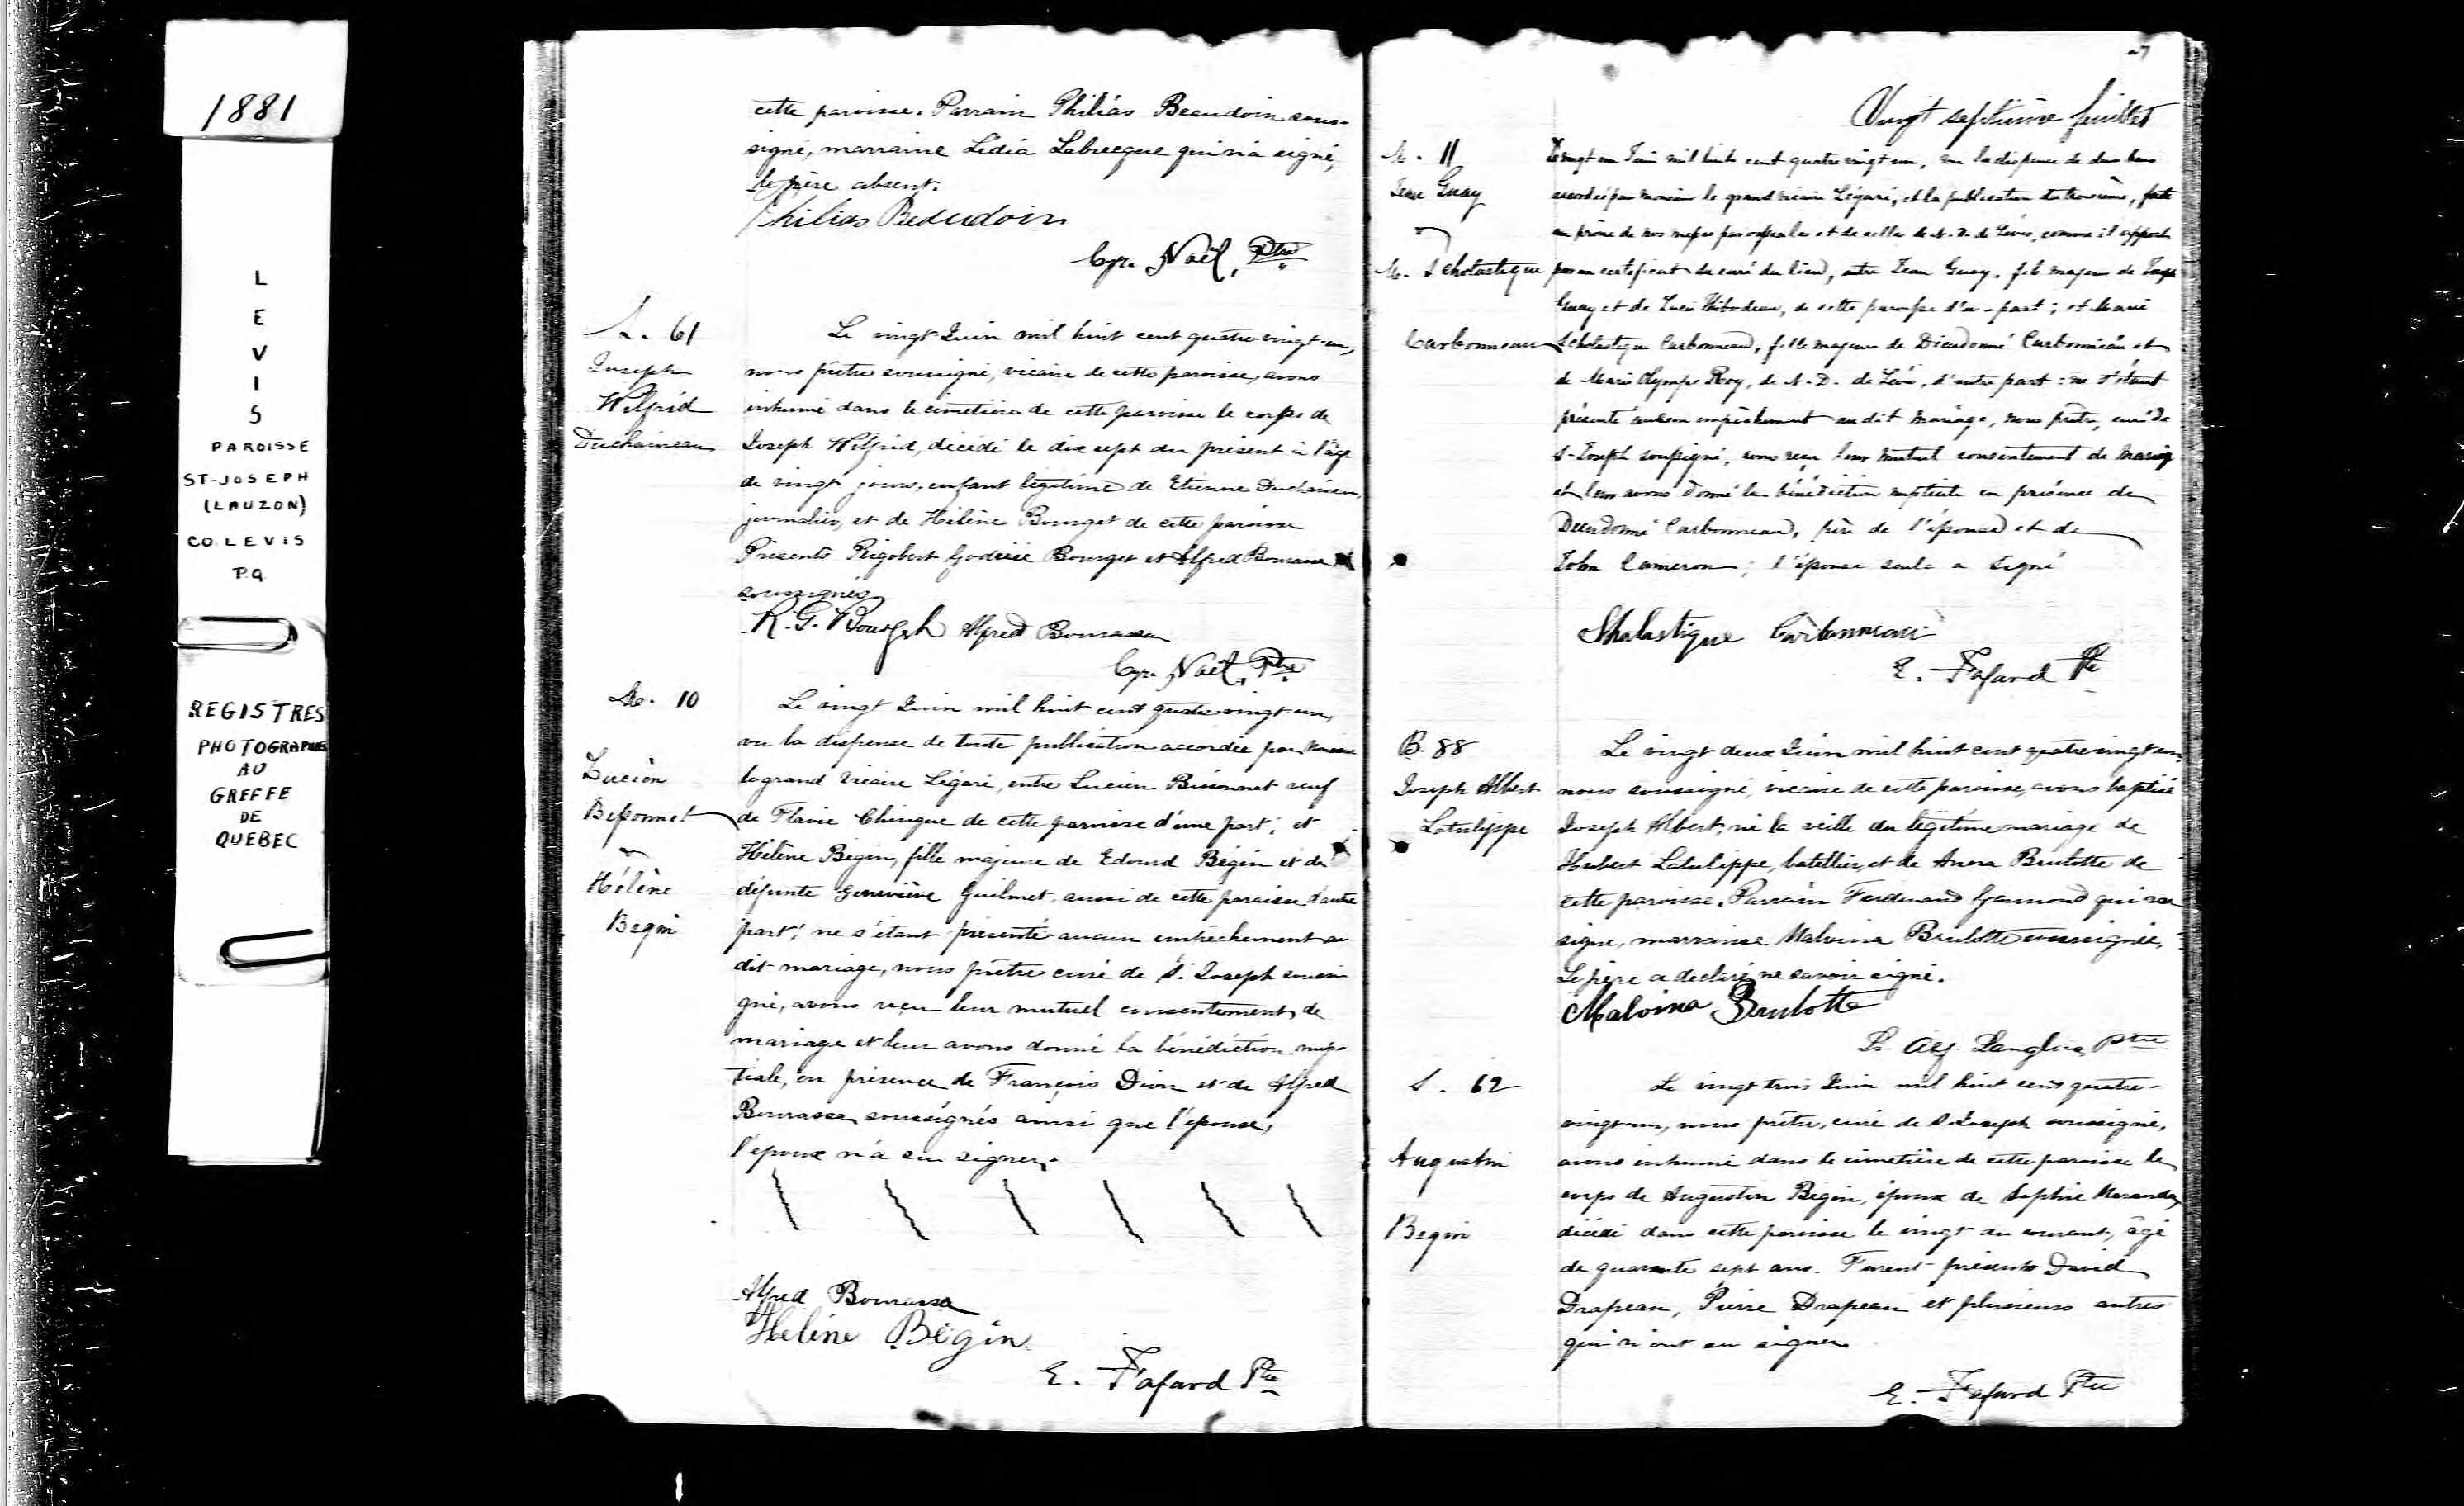 1881
L
E
V
I
S
PAROISSE
ST-JOSEPH
(LAUZON)
CO. LEVIS
P.Q.
REGISTRES
PHOTOGRAPHIÉS
AU
GREFFE
DE
QUEBEC
cette paroisse. Parrain Philias Beaudoin sous-
signé, marraine Lédia Labrecque qui n'a signé,
le père absent.
Philias Beaudoin
Cyr. Noël, Ptre
S. 61
Joseph
Wilfrid
Duchaineau
Le vingt Juin mil huit cent quatre-vingt-un,
nous prêtre soussigné, vicaire de cette paroisse, avons
inhumé dans le cimetière de cette paroisse le corps de
Joseph Wilfrid, décédé le dix sept du présent à l'âge
de vingt jours, enfant légitime de Etienne Duchaineau,
journalier, et de Hélène Bourget de cette paroisse
Présents Rigobert Godéric Bourget et Alfred Bourassa
soussignés
R. G. Bourget Alfred Bourassa
Cyr. Noël, Ptre
M. 10
Lucien
Bissonnet
et
Hélène
Begin
Le vingt Juin mil huit cent quatre vingt-un,
vu la dispense de toute publication accordée par Monsieur
le grand Vicaire Légaré, entre Lucien Bissonnet veuf
de Flavie Chinque de cette paroisse d'une part; et
Hélène Bégin, fille majeure de Edouard Bégin et de
défunte Geneviève Guilmet, aussi de cette paroisse d'autre
part; ne s'étant présenté aucun empêchement au
dit mariage, nous prêtre curé de St. Joseph soussi
gné, avons reçu leur mutuel consentement de
mariage et leur avons donné la bénédiction nup-
tiale, en présence de François Dion et de Alfred
Bourassa soussignés ainsi que l'épouse,
l'époux n'a su signer.
Alfred Bourassa
Helène Bégin
E. Fafard Ptre
27
Vingt septième feuillet
M. 11
Jean Guay
et
M. Scholastique
Carbonneau
Le vingt un Juin mil huit cent quatre vingt un, vu la dispense de deux bans
accordée par Monsieur le grand vicaire Légaré, et la publication du troisième, faite
au prône de nos messes paroissiales et de celle de N. D. de Lévis, comme il appert
par un certificat du curé du lieu, entre Jean Guay, fils majeur de
Guay et de Luce Thibodeau, de cette paroisse d'une part; et Marie
Scholastique Carbonneau, fille majeure de Dieudonné Carbonneau et
de Marie Olympe Roy, de N.-D. de Lévis, d'autre part: ne s'étant
présenté aucun empêchement au dit mariage, nous prêtre, curé de
St-Joseph soussigné, avons reçu leur mutuel consentement de mariage
et leur avons donné la bénédiction nuptiale en présence de
Dieudonné Carbonneau, père de l'épouse et de
John Cameron; l'épouse seule a signé
Sholastique Carbonneau
E. Fafard Ptre
B. 88
Joseph Albert
Latulippe
Le vingt deux Juin mil huit cent quatre vingt un,
nous soussigné, vicaire de cette paroisse, avons baptisé
Joseph Albert, né la veille du légitime mariage de
Hubert Latulippe, batellier, et de Anna Brulotte de
cette paroisse. Parrain Ferdinand Gammond qui n'a
signé, marraine Malvina Brulotte soussignée,
Le père a déclaré ne savoir signé.
Malvina Brulotte
L. Alf. Langlois Ptre
S. 62
Augustin
Begin
Le vingt trois Juin mil huit cent quatre-
vingt-un, nous prêtre, curé de St Joseph soussigné,
avons inhumé dans le cimetière de cette paroisse le
corps de Augustin Bégin, époux de Sophie Maranda,
décédé dans cette paroisse le vingt du courant, âgé
de quarante sept ans. Furent présents David
Drapeau, Pierre Drapeau et plusieurs autres
qui n'ont su signer
E. Fafard Ptre